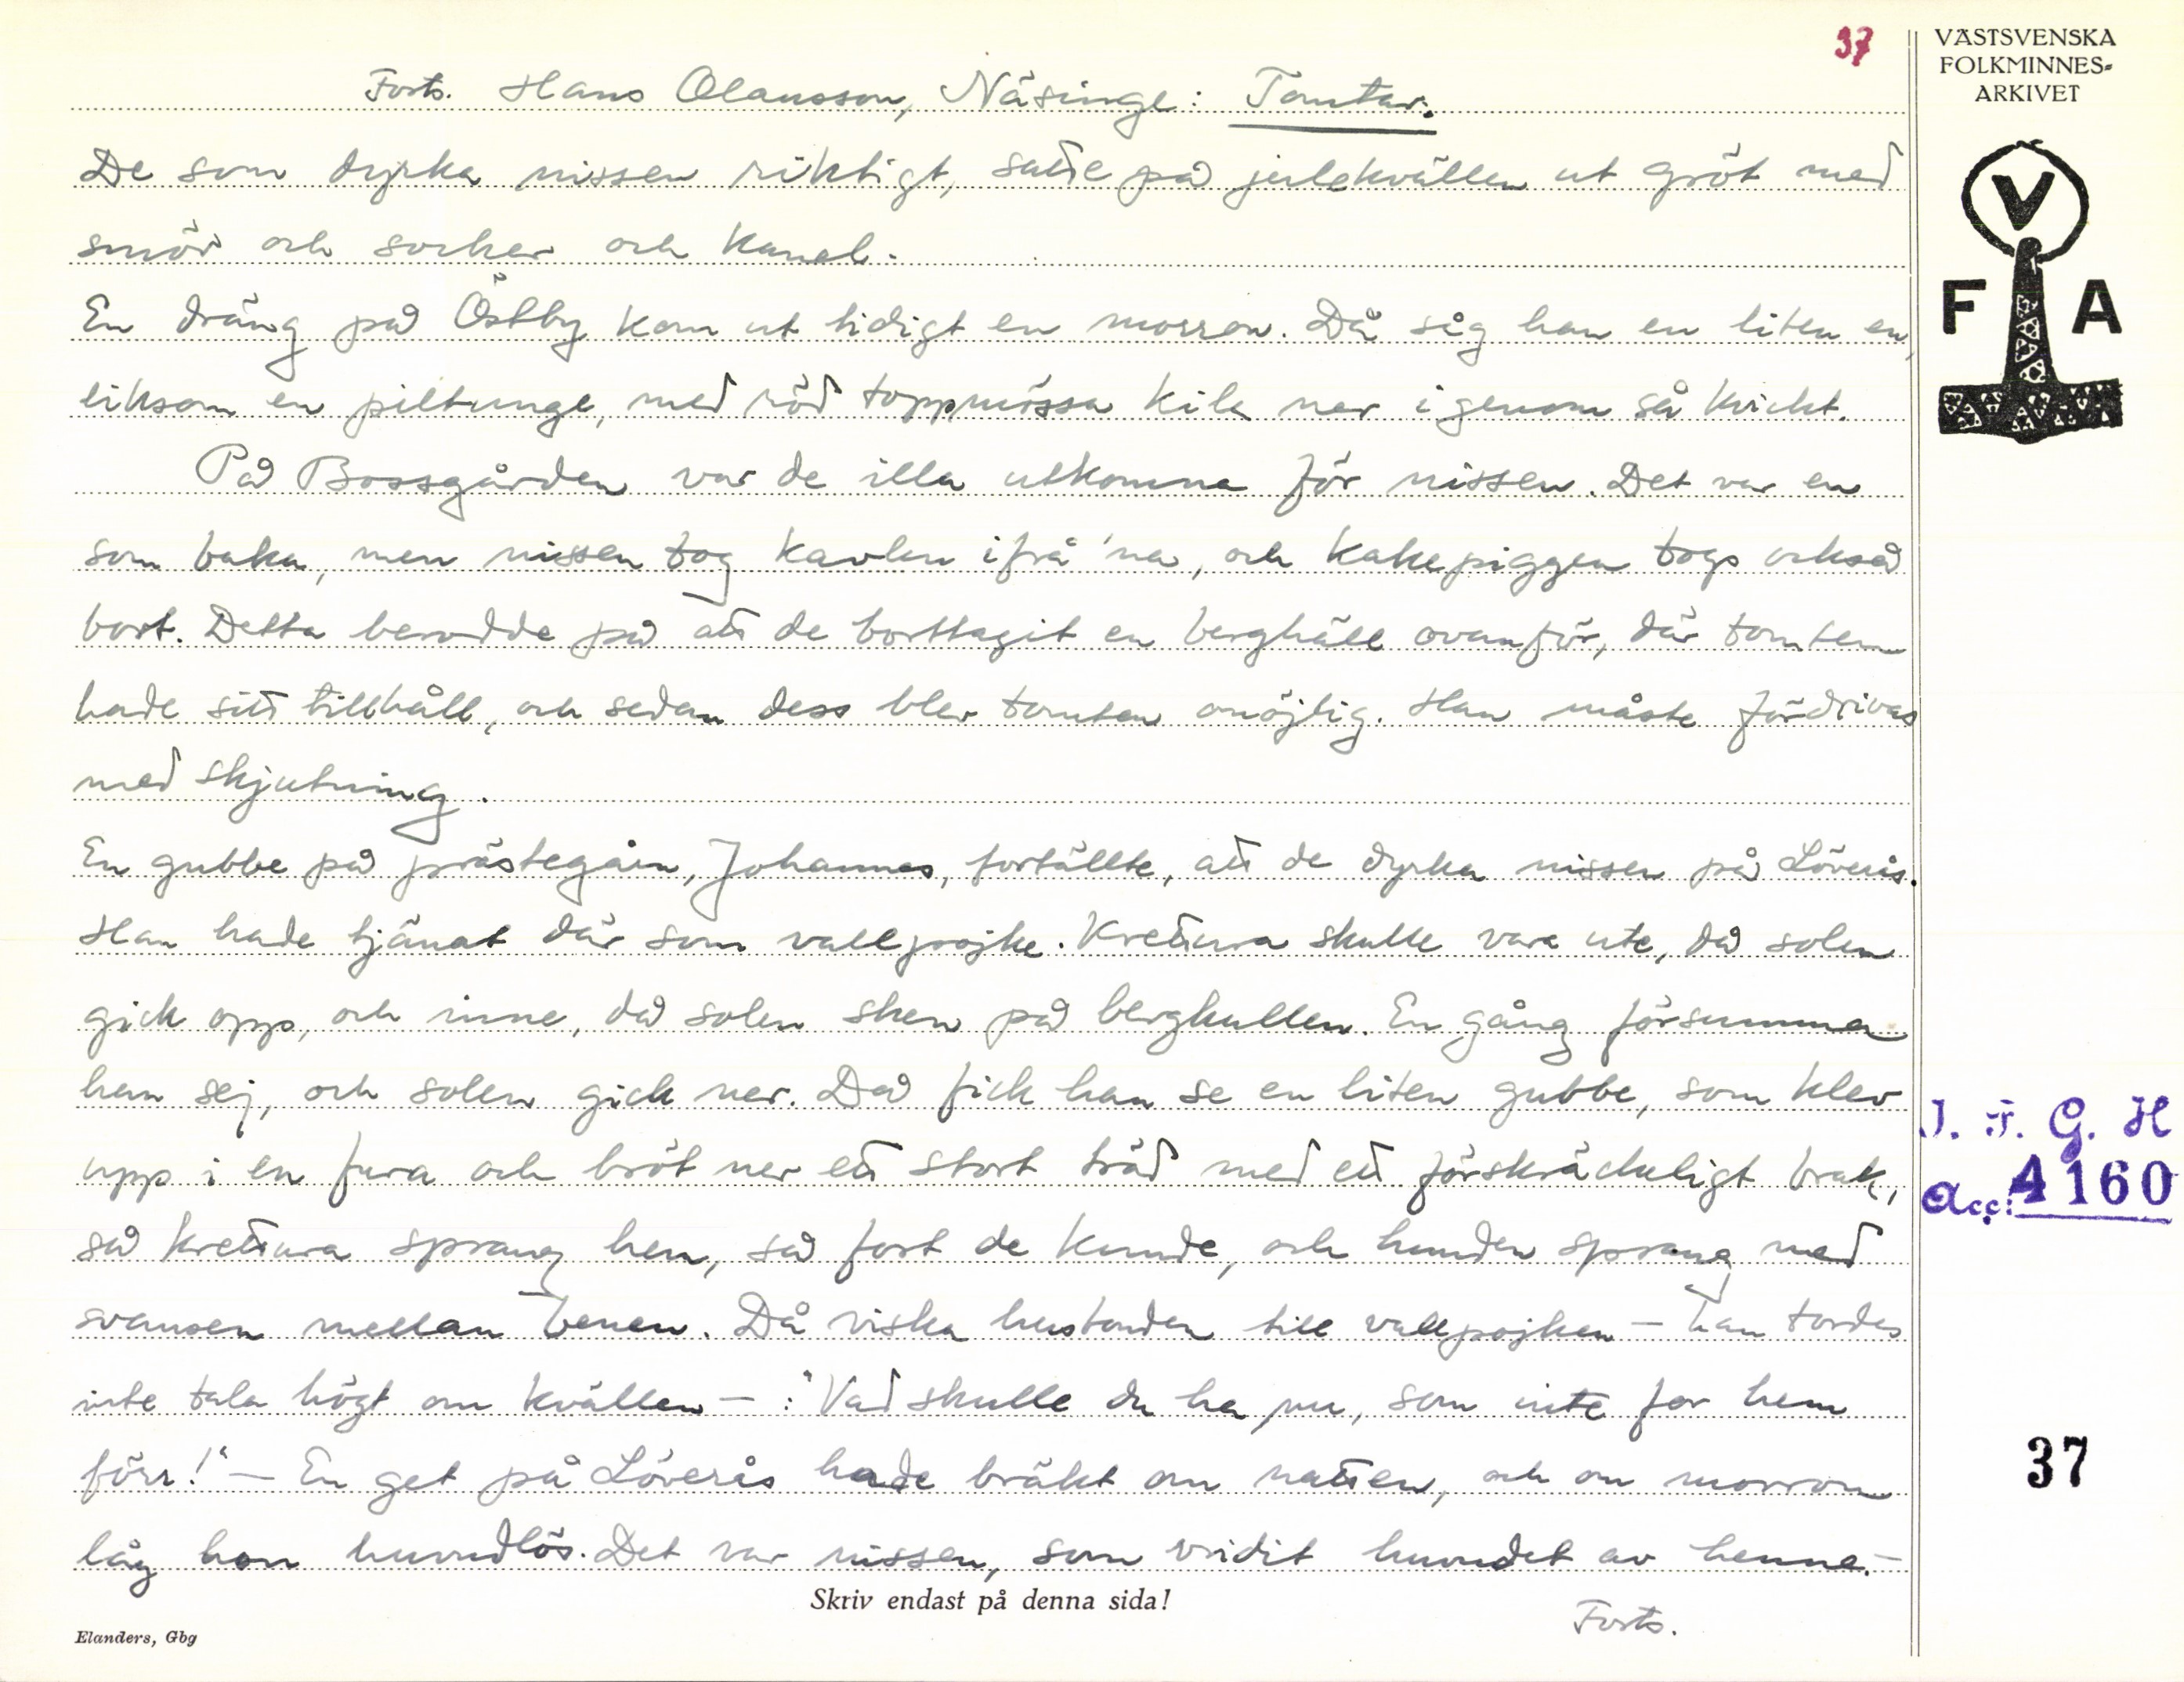 37
VÄSTSVENSKA
FOLKMINNES-
ARKIVET
V
F A
Forts. Hans Olausson, Näsinge: Tomtar.
De som dyrka nissen riktigt, satte på julekvällen ut gröt med
smör och socker och kanel.
En dräng på Östby kom ut tidigt en morron. Då såg han en liten en,
liksom en piltunge, med röd toppmössa kila ner igenom så kvickt.
På Bossgården var de illa utkomna för nissen. Det var en
som baka, men nissen tog kavlen ifrå 'na, och kakepiggen togs också
bort. Detta berodde på att de borttagit en berghäll ovanför, där tomten
hade sitt tillhåll, och sedan dess blev tomten omöjlig. Han måste fördrivas
med skjutning.
En gubbe på prästegårn, Johannes, fortällte, att de dyrka nissen på Löverås.
Han hade tjänat där som vallpojke. Kretura skulle vara ute, då solen
gick opp, och inne, då solen sken på bergkullen. En gång försumma
han sej, och solen gick ner. Då fick han se en liten gubbe, som klev
upp i en fura och bröt ner ett stort träd med ett förskräckeligt brak,
så kretura sprang hem, så fort de kunde, och hunden sprang med
svansen mellan benen. Då viska husbonden till vallpojken – han tordes
inte tala högt om kvällen – : "Vad skulle du ha nu, som inte for hem
förr!" – En get på Löverås hade bräkt om natten, och om morron
låg hon huvudlös. Det var nissen, som vridit huvudet av henne. –
Forts.
Skriv endast på denna sida!
Elanders, Gbg
I. F. G. H
Acc: 4160
37